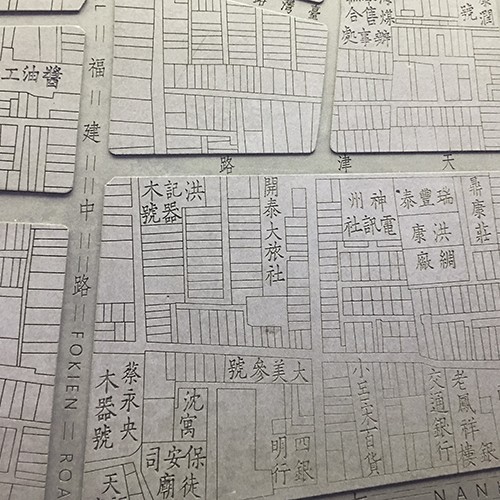 醬油工
福建中路
FOKIEN ROA
天津路
洪記木
器號
開泰大旅社
神州
電訊社
瑞豐泰
洪康
綢廠
鼎康莊
大美參號
蔡永央
木器號
沈寓
保安司徒廟
四明銀行
百貨
交通銀行
老鳳祥銀樓
天
NAN